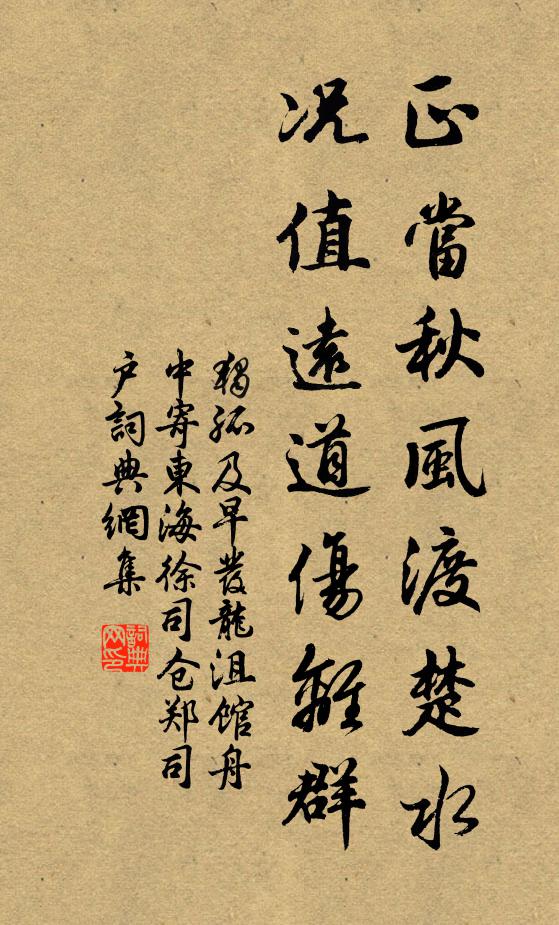 正當秋風渡楚水
況值遠道傷離群
獨孤及早發龍沮馆舟
中寄東海徐司仓郑司
户詞典網集
詞典
网印